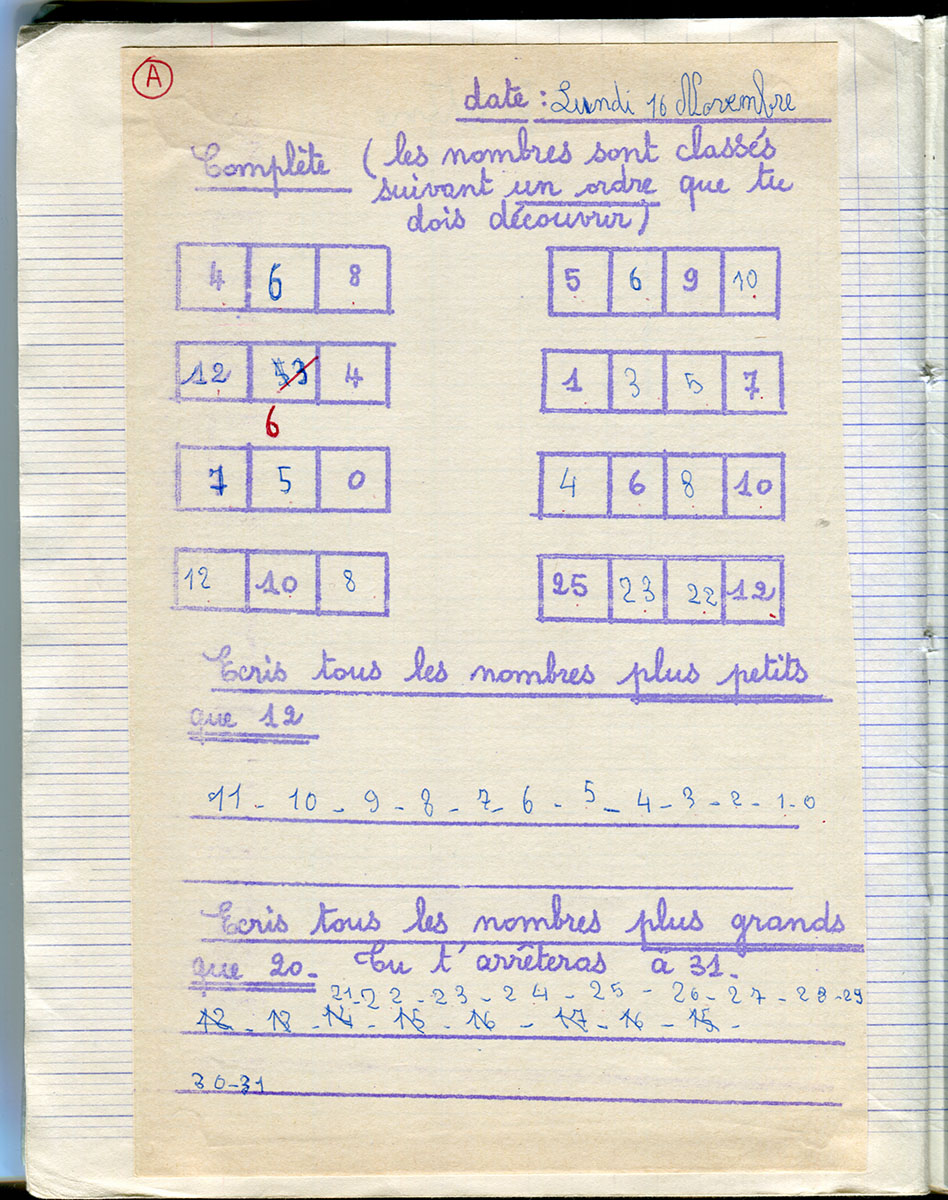 A
date : Lundi 16 Novembre
Complète ( les nombres sont classés
suivant un ordre que tu
dois découvrir )
4 6 8
5 6 9 10
12 4
6
1 3 5 7
7 5 0
4 6 8 10
12 10 8
25 23 22 12
Ecris tous les nombres plus petits
que 12
11 - 10 - 9 - 8 - 7 - 6 - 5 - 4 - 3 - 2 - 1 - 0
Ecris tous les nombres plus grands
que 20. Tu t'arrêteras à 31.
21 - 22 - 23 - 24 - 25 - 26 - 27 - 28 - 29
12 - 13 - 14 - 15 - 16 - 17 - 16 - 15 -
30 - 31